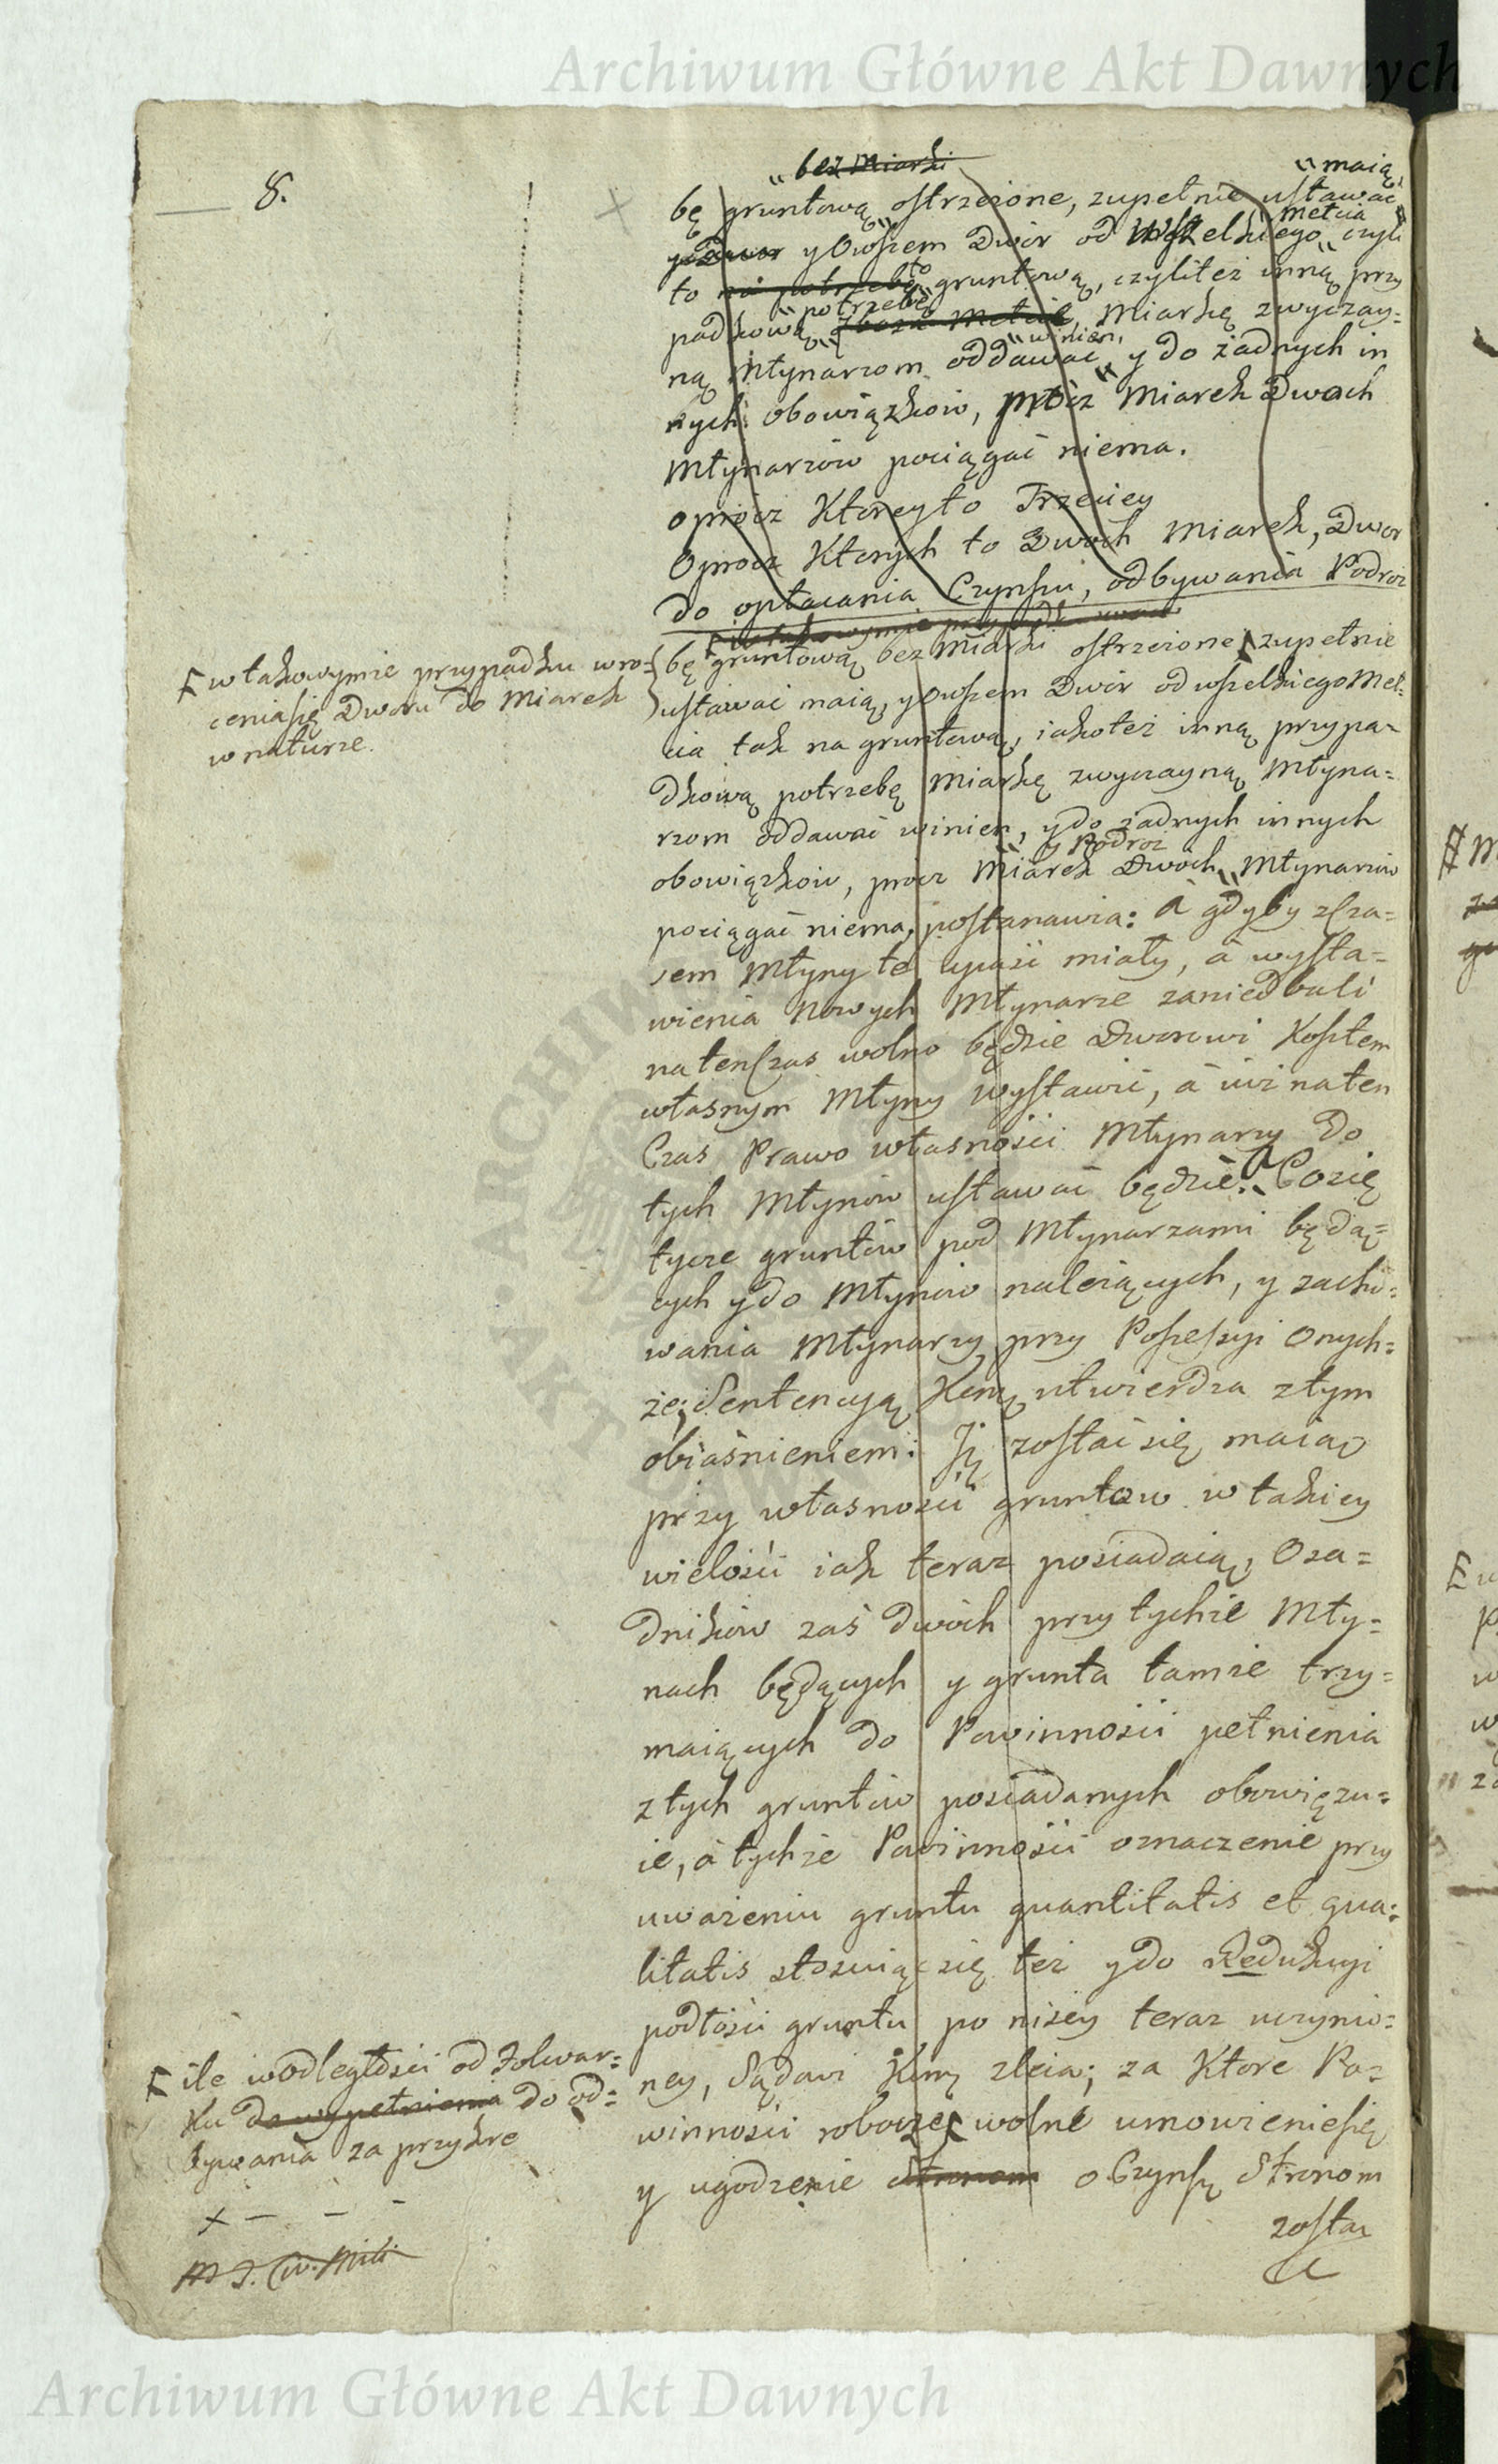 Archiwum Główne Akt Dawnych
8.
bez miarki
maią
bę gruntową ostrzeżone, zupełnie ustawać
mełcia
y Dwor y Owszem Dwór od wszelkiego czyli
to na potrzebę to gruntową, czyliteż inną przy
potrzebę
padkową zboża mełcie, Miarkę zwyczay=
winien,
ną Młynarzom oddawać, y do żadnych in
nych obowiązków, prócz Miarek Dwoch
Młynarzów pociągać niema.
oprócz Ktoreyto Trzeciey
Oprocz Ktorych to Dwóch Miarek, Dwor
do opłacania Czynszu, odbywania Podroż
w takowymże przypadku
bę gruntową bez Miarki ostrzeżone zupełnie
w takowymże przypadku wro=
ceniasię Dworu do Miarek
w naturze.
ustawać maią, y Owszem Dwór od wszelkiego Meł=
cia tak na gruntową, iakoteż inną przypa=
dkową potrzebę Miarkę zwyczayną Młyna=
rzom oddawać winien, y do żadnych innych
y Podroż
obowiązków, prócz Miarek Dwóch Młynarzów
pociągać niema, postanawia: à gdyby zcza=
sem Młyny te upaść miały, à wysta=
wienia Nowych Młynarze zaniedbali
natenczas wolno będzie Dworowi Kosztem
własnym Młyny wystawić, à iuż naten
Czas Prawo własności Młynarzy do
tych Młynów ustawać będzie. Cosię
tycze gruntów pod Młynarzami będą=
cych y do Młynów należących, y zacho=
wania Młynarzy przy Possessyi Onych=
że; Sentencyą Kmą utwierdza ztym
obiaśnieniem: Iż zostać się maią
przy własności gruntow w takiey
wielości iak teraz posiadaią, Osa=
dników zaś dwóch przy tychże Mły=
nach będących y grunta tamże trzy=
maiących do Powinności pełnienia
z tych gruntów posiadanych obowięzu=
ie, à tychże Powinności oznaczenie przy
uważeniu gruntu quantitatis et qua=
litatis stosuiąc się też y do Redukcyi
podłości gruntu po niżey teraz uczynio=
ney, Sądowi Kmu zleca; za Ktore Po=
winności robocze wolne umowieniesię
y ugodzenie Stronom o Czynsz Stronom
zostaw
ile w odległości od Folwar=
ku do wypełnienia do od=
bywania za przykre
x - - -
Archiwum Główne Akt Dawnych